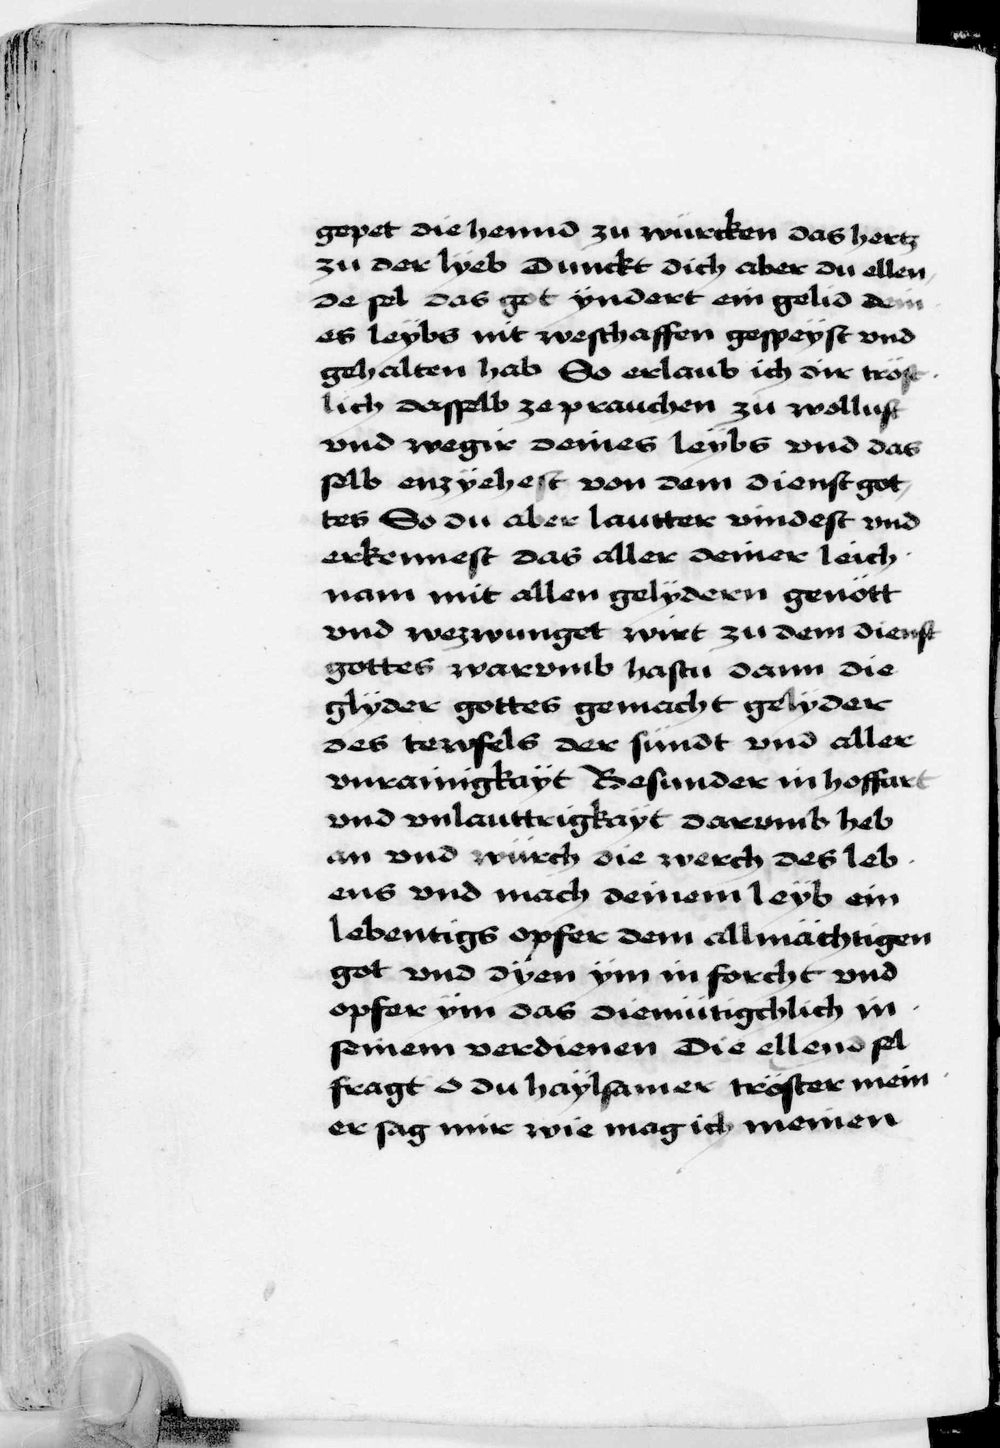 gepet die hennd zu würcken das hertz
zu der lyeb Dunckt dich aber du ellen,
de sel das got ÿndert ein gelid dein
es leÿbs nit weschaffen gespeÿst vnd
gehalten hab So erlaub ich dir tröst.
lich dasselb ze prauchen zu wollust
vnd wegir deines leÿbs vnd das
selb enzÿehest von dem dienst got,
tes So du aber lautter vindest vnd
erkennest das aller deiner leich.
nam mit allen gelÿdern genött
vnd wezwunget wirt zu dem dienst
gottes warvmb hastu dann die
glÿder gottes gemacht gelÿder
des tewfels der sündt vnd aller
vnrainigkaÿt Besunder in hoffart
vnd vnlauttrigkaÿt darvmb heb
an vnd würch die werch des leb.
ens vnd mach deinem leÿb ein
lebentigs opfer dem allmächtigen
got vnd dÿen ÿm in forcht vnd
opfer ÿm das diemütigchlich in.
seinem verdienen Die ellend sel
fragt O du haÿlsamer tröster mein.
er sag mir wie mag ich meinen